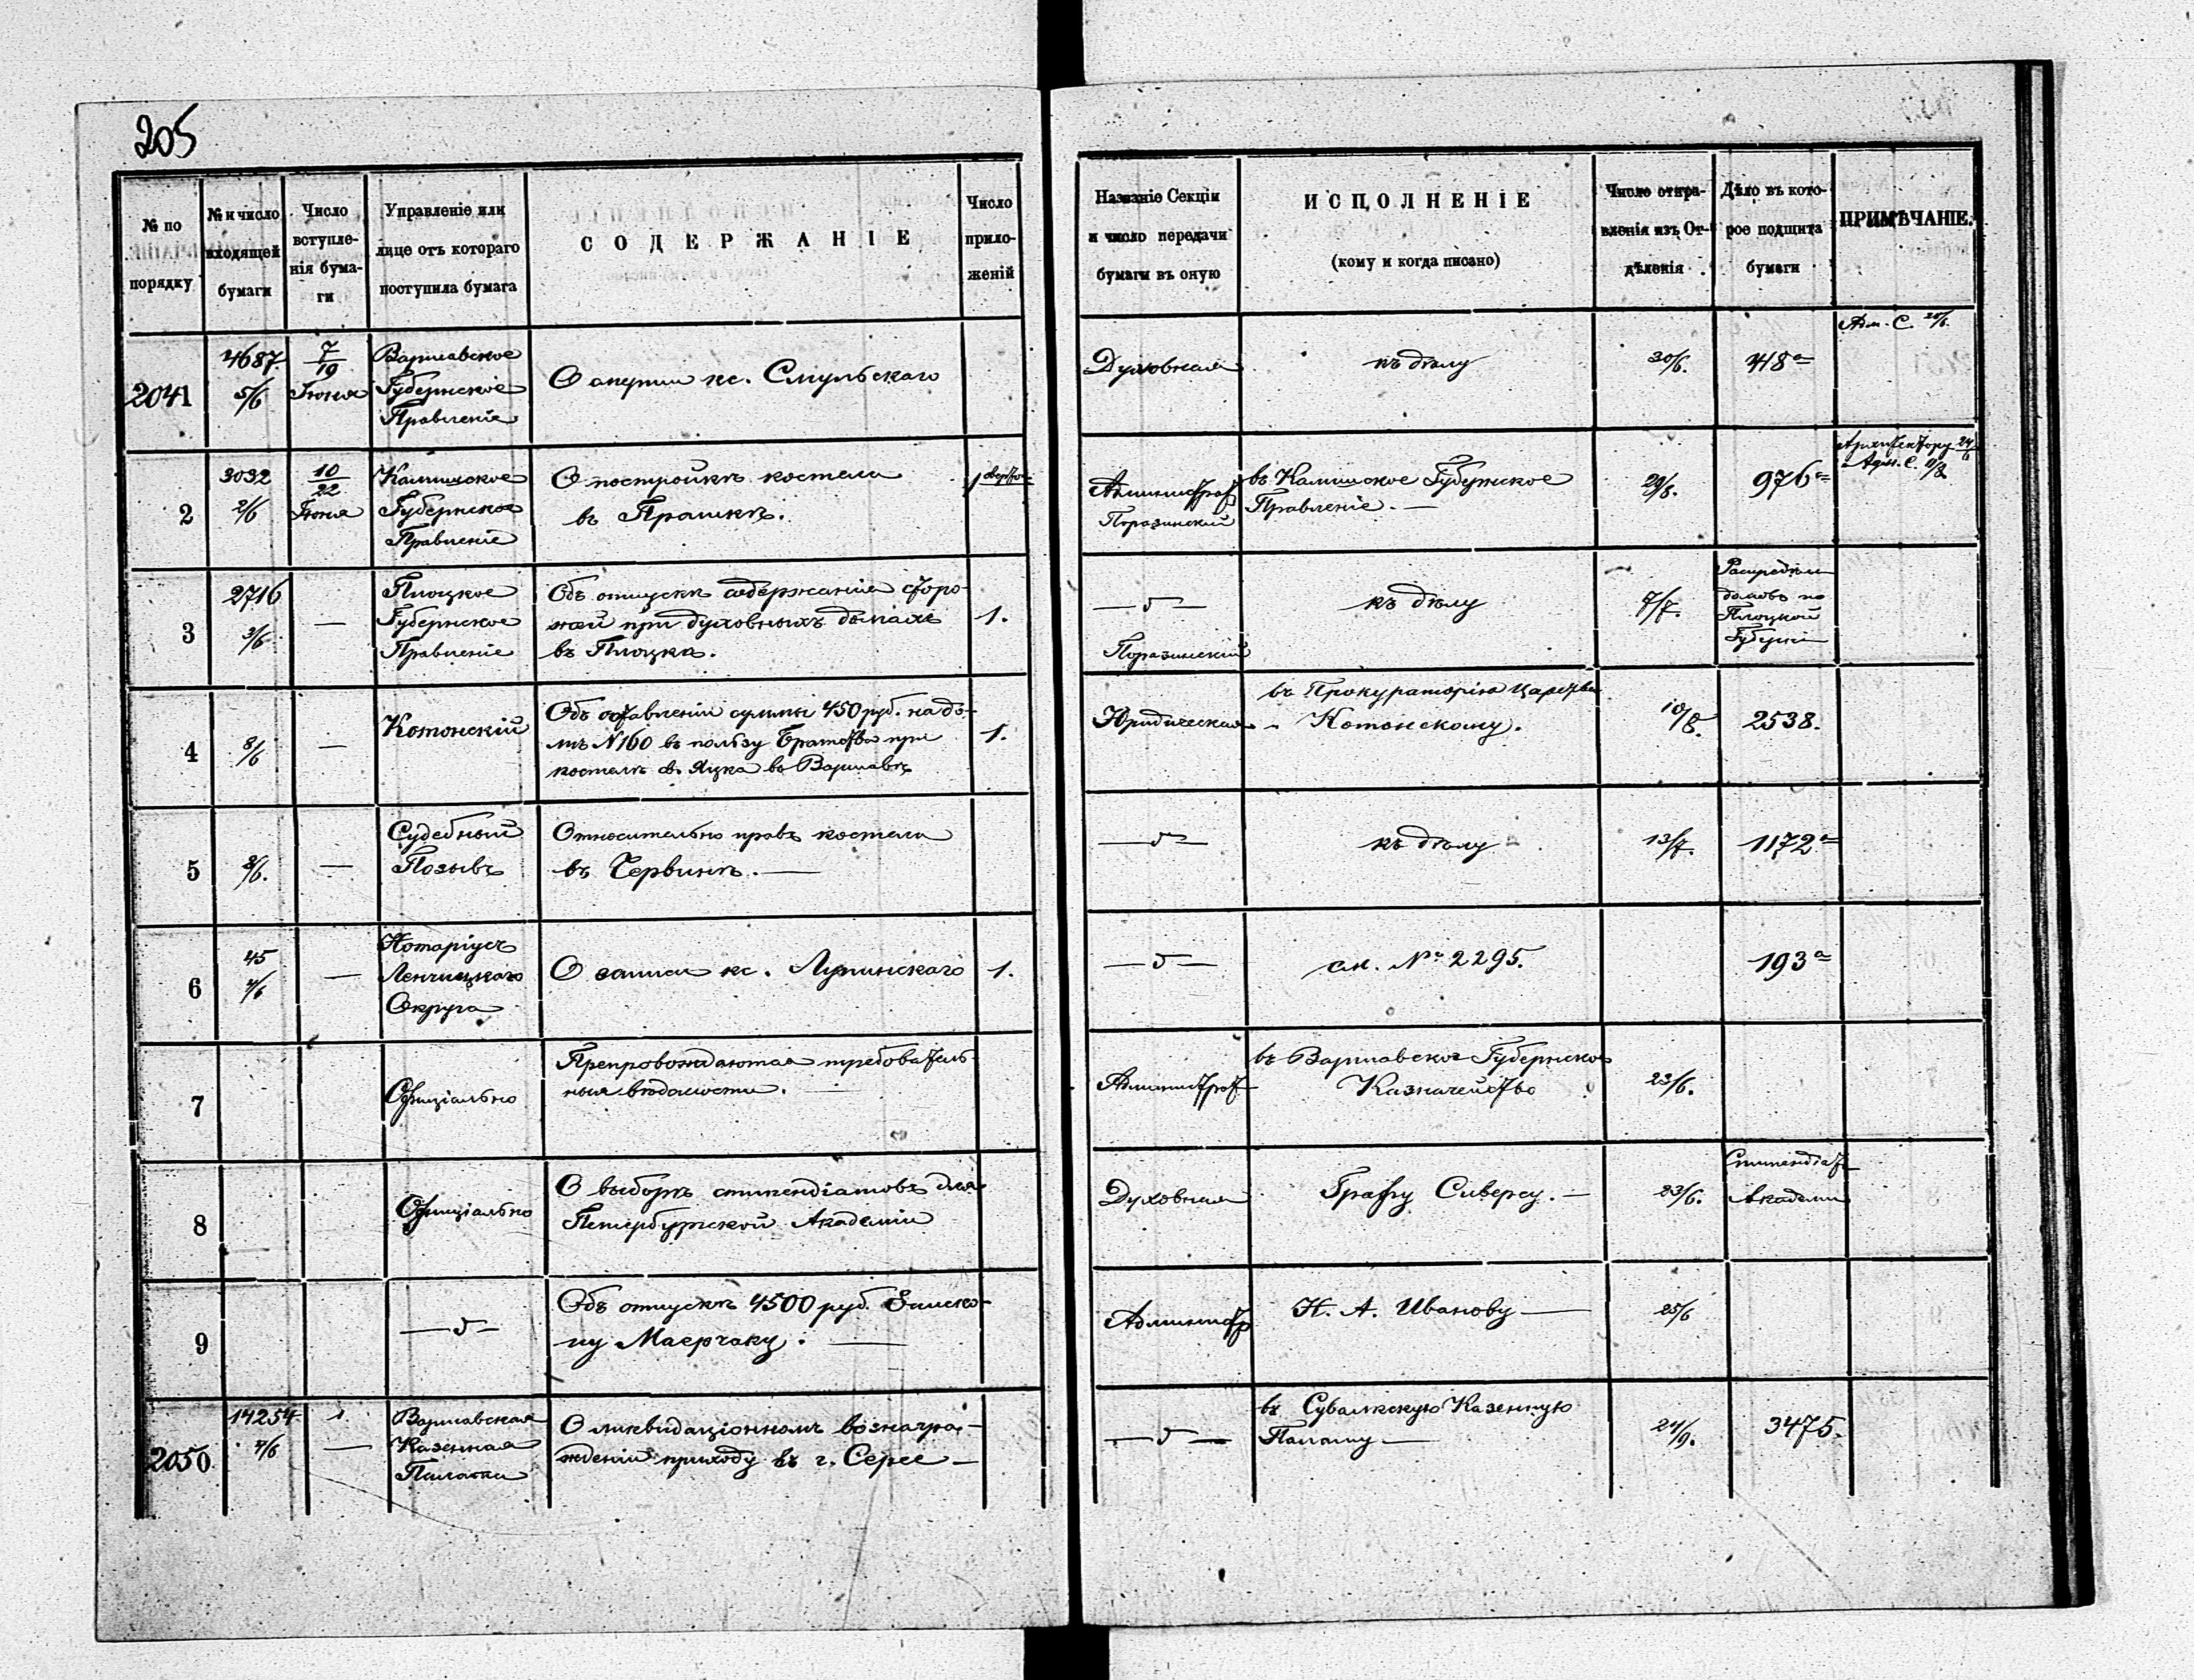 205
№ по
порядку
№ и число
входящей
бумаги
Число
вступле-
нія бума-
ги
Управленіе или
лице отъ котораго
поступила бумага
СОДЕРЖАНІЕ
Число
прило-
женій
Названіе Секціи
и число передачи
бумаги въ оную
ИСПОЛНЕНІЕ
(кому и когда писано)
Число отпра-
вленія изъ От-
дѣленія
Дѣло въ кото-
рое подшита
бумаги
ПРИМѢЧАНІЕ.
2041
4687.
5/6
7/19
Іюня
Варшавское
Губернское
Правленіе
О смерти кс. Смульскаго
Духовная
къ дѣлу
30/6.
418а
Адм. С. 20/6.
2
3032
2/6
10/22
Іюня
Калишское
Губернское
Правленіе
О постройкѣ костела
въ Прашкѣ.
1
Администрат
Поразинский
въ Калишское Губернское
Правленіе. —
29/8.
976а
Архитектору 24/6
Адм. С.
3
2716
3/6
—
Плоцкое
Губернское
Правленіе
Объ отпускѣ содержанія сторо-
жей при духовныхъ домахъ
въ Плоцкѣ.
1.
— 〃 —
Поразинский
къ дѣлу
7/7.
домовъ по
Плоцкой
Губерніи
4
8/6
—
Котонскій
Объ оставленіи суммы 450 руб. на до-
мѣ N 160 въ пользу Братства при
костелѣ св. Яцка въ Варшавѣ
1.
Юридическая
въ Прокураторію Царства
Котонскому.
10/8.
2538.
5
3/6.
—
Судебный
Позывъ
Относительно правъ костела
въ Червинѣ. —
— 〃 —
къ дѣлу
13/7.
1172а
6
45
4/6
—
Нотаріусъ
Ленчицкаго
Округа
О записи кс. Лупинскаго
1.
— 〃 —
см. № 2295.
193а
7
Офиціально
Препровождаются требователь-
ныя вѣдомости. —
Администрат
въ Варшавское Губернское
Казначейство
23/6.
8
Офиціально
О выборѣ стипендіатовъ для
Петербургской Академіи
Духовная
Графу Сиверсу. —
23/6.
Стипендіат
Академіи
9
— 〃 —
Объ отпускѣ 4500 руб. Еписко-
пу Маерчаку. —
Администр
Н. А. Иванову —
25/6
2050
14254
4/6
—
Варшавская
Казенная
Палата
О ликвидаціонномъ вознагра-
жденіи приходу въ г. Серее —
— 〃 —
въ Сувалкскую Казенную
Палату —
21/9.
3475.